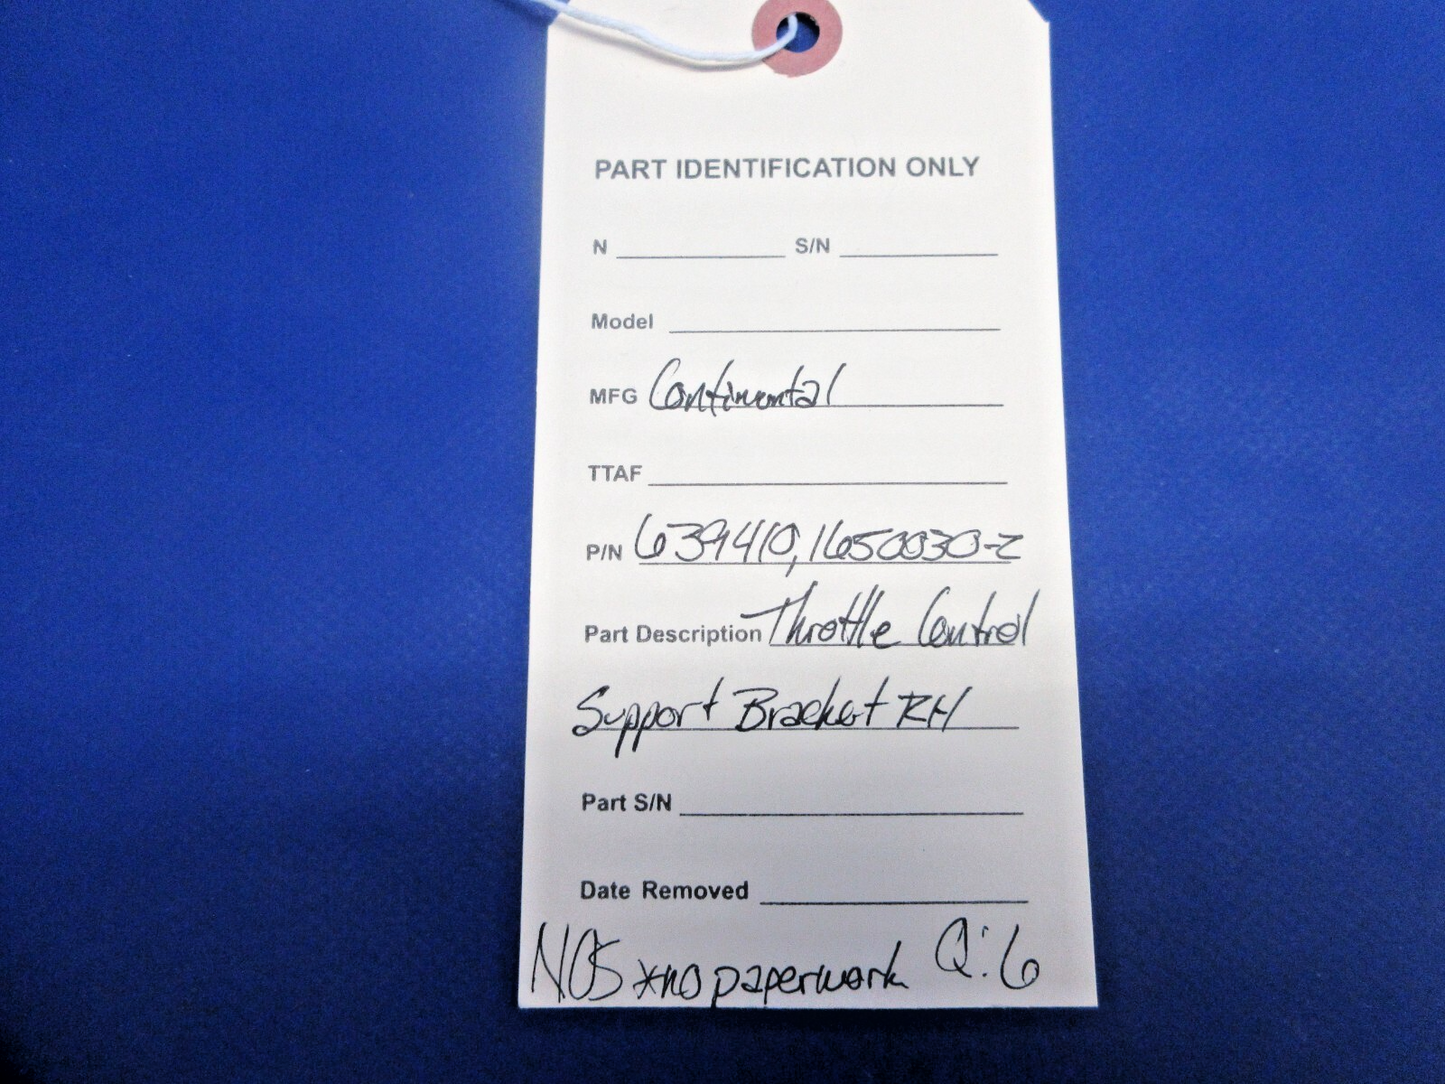 PART IDENTIFICATION ONLY
N S/N
Model
MFG Continental
TTAF
P/N 639410, 1650030-2
Part Description Throttle Control
Support Bracket RH
Part S/N
Date Removed
NOS *no paperwork Q:6